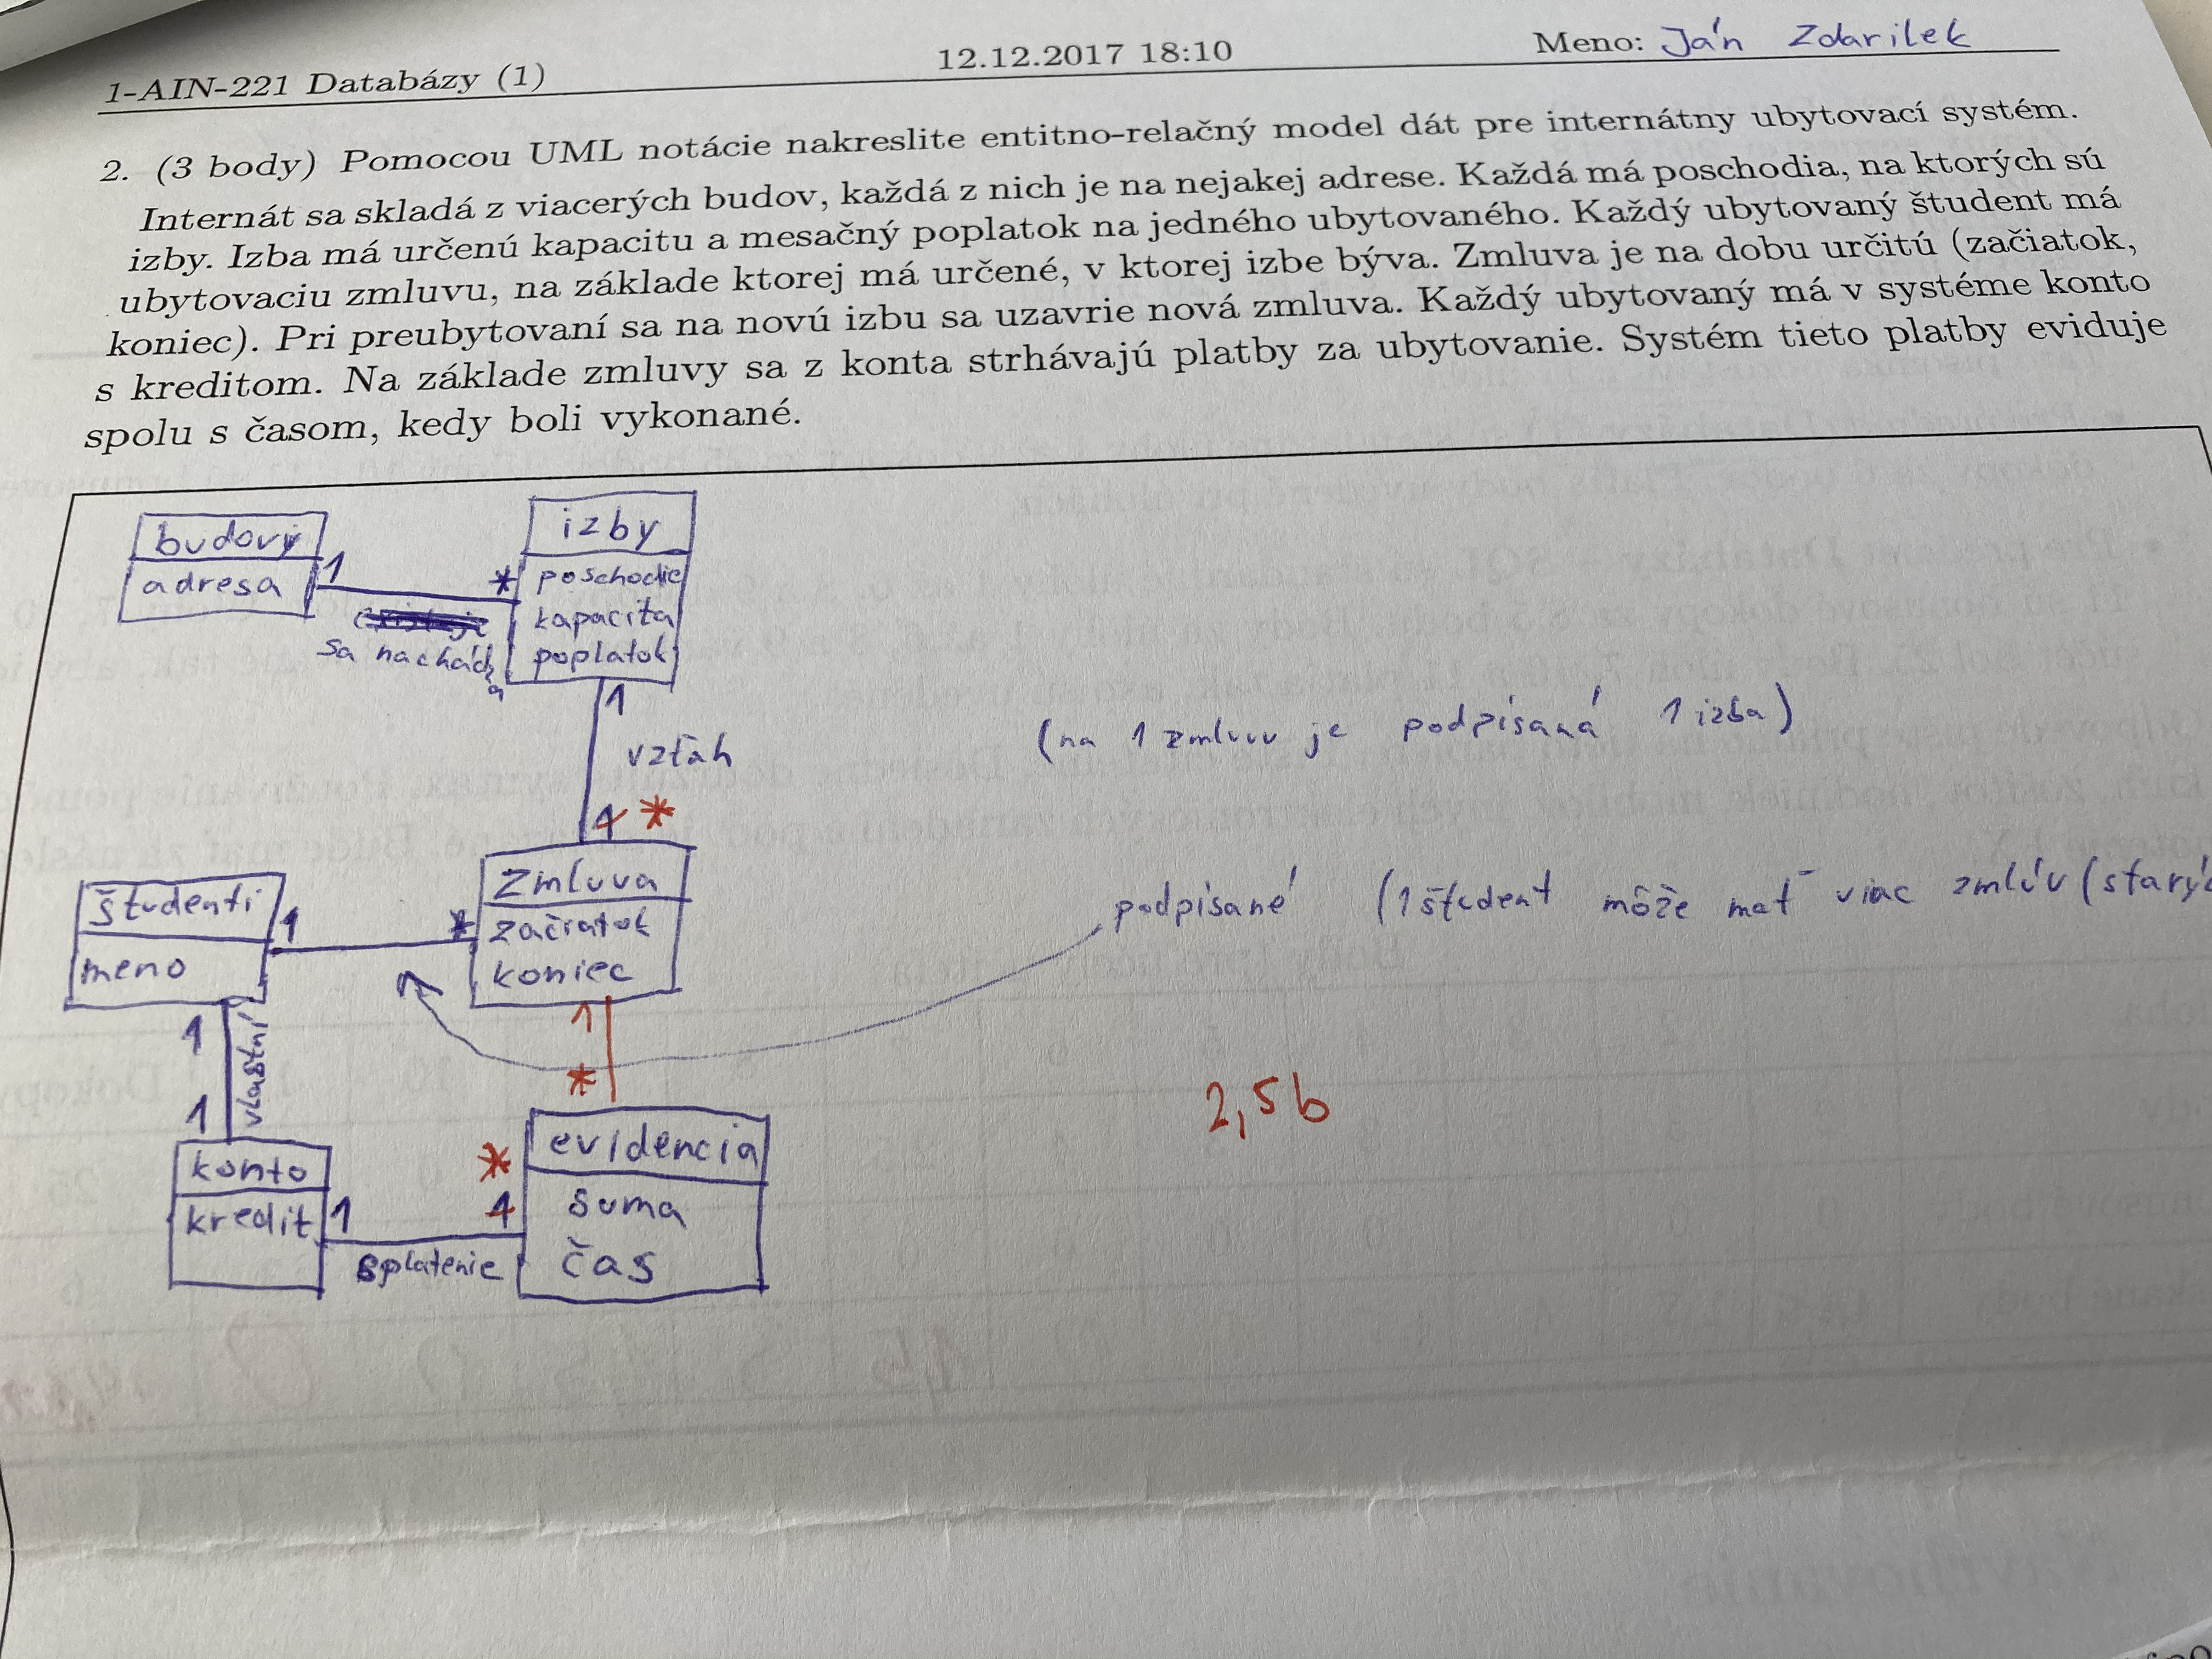 1-AIN-221 Databázy (1) 12.12.2017 18:10 Meno: Ján Zdarilek
2. (3 body) Pomocou UML notácie nakreslite entitno-relačný model dát pre internátny ubytovací systém.
Internát sa skladá z viacerých budov, každá z nich je na nejakej adrese. Každá má poschodia, na ktorých sú
izby. Izba má určenú kapacitu a mesačný poplatok na jedného ubytovaného. Každý ubytovaný študent má
ubytovaciu zmluvu, na základe ktorej má určené, v ktorej izbe býva. Zmluva je na dobu určitú (začiatok,
koniec). Pri preubytovaní sa na novú izbu sa uzavrie nová zmluva. Každý ubytovaný má v systéme konto
s kreditom. Na základe zmluvy sa z konta strhávajú platby za ubytovanie. Systém tieto platby eviduje
spolu s časom, kedy boli vykonané.
budovy
adresa
1
*
sa nachádza
izby
poschodie
kapacita
poplatok
1
vzťah
1 *
(na 1 zmluvu je podpísaná 1 izba)
študenti
meno
1
*
zmluva
začiatok
koniec
podpísané (1 študent môže mať viac zmlúv (starých
1
vlastní
1
1
*
konto
kredit
1
splatenie
1 *
evidencia
suma
čas
2,5b